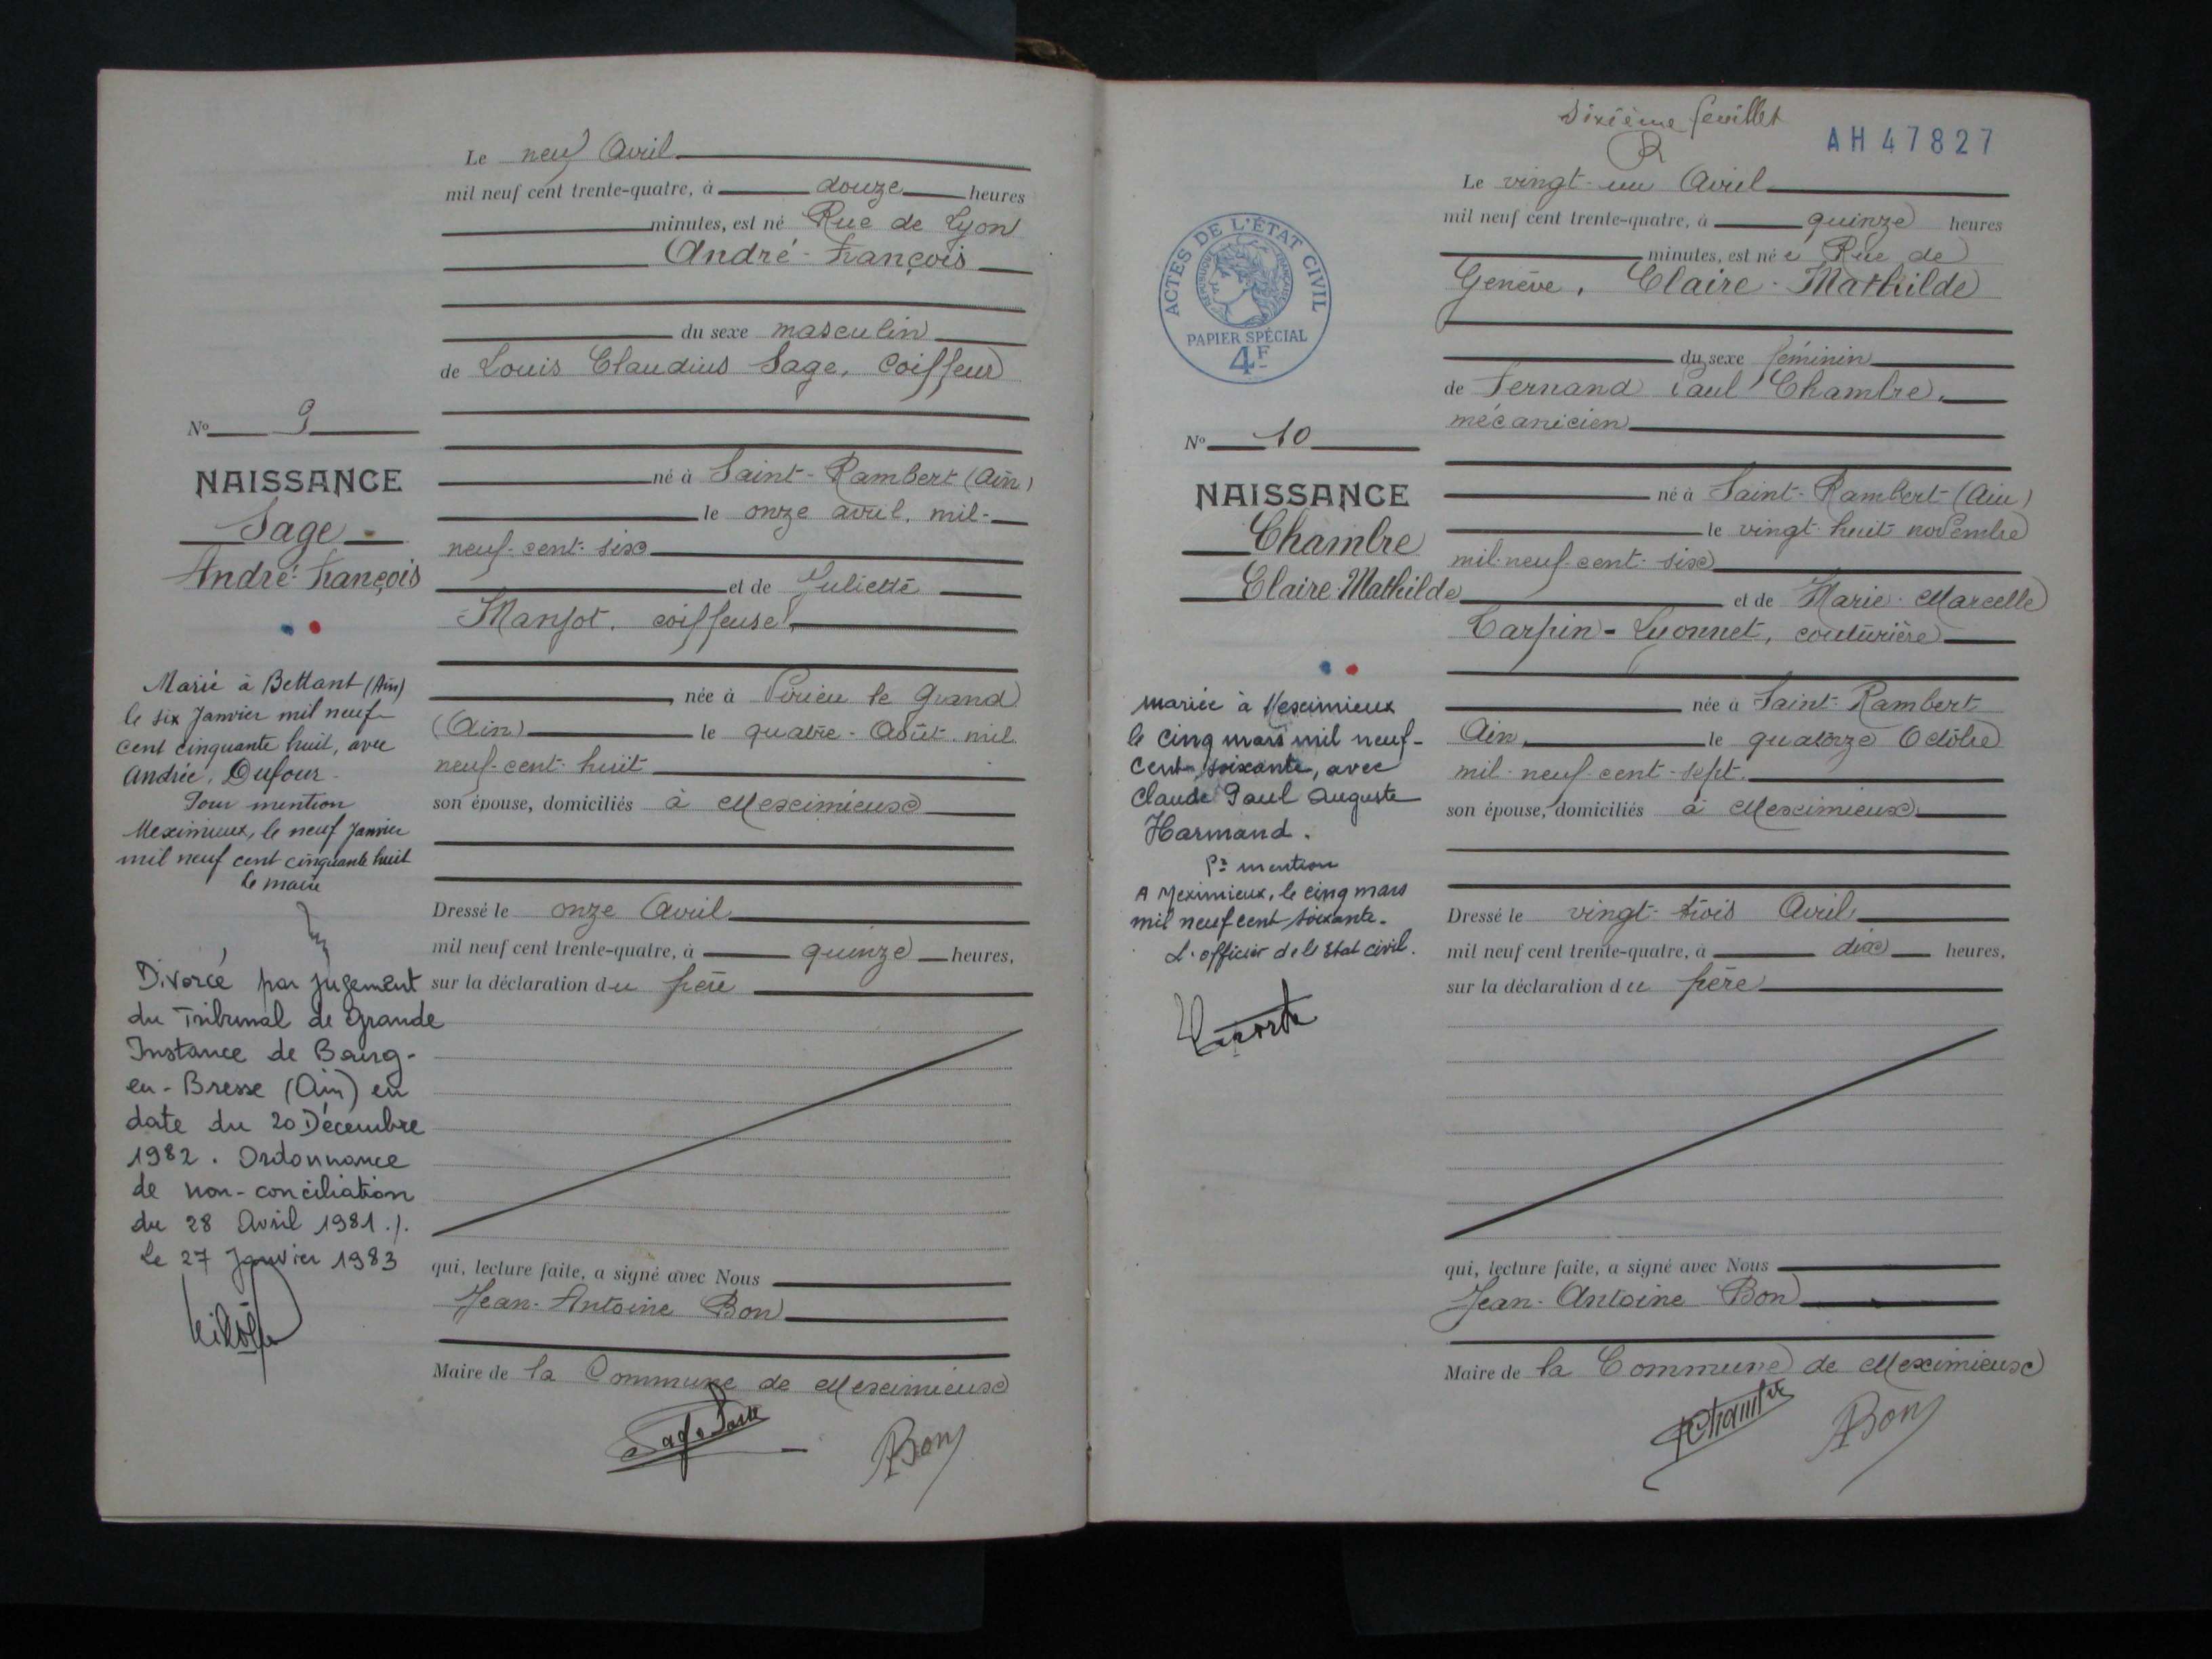 Le neuf Avril
mil neuf cent trente-quatre, à douze heures
minutes, est né Rue de Lyon
André-François
du sexe masculin
de Louis Claudius Sage, Coiffeur
né à Saint-Rambert (Ain)
le onze avril, mil-
neuf-cent-six
et de Juliette
coiffeuse,
née à le Grand
(Ain) le quatre-Août mil
neuf-cent-huit
son épouse, domiciliés à Meximieux
Dressé le onze Avril
mil neuf cent trente-quatre, à quinze heures,
sur la déclaration du père
qui, lecture faite, a signé avec Nous
Jean-Antoine Bon
Maire de la Commune de Meximieux
Bon
No 9
NAISSANCE
Sage
André-François
Marié à Bettant (Ain)
le six Janvier mil neuf
cent cinquante huit, avec
Andrée, Dufour
Pour mention
Meximieux, le neuf Janvier
mil neuf cent cinquante huit
le maire
Divorcé par jugement
du Tribunal de Grande
Instance de Bourg-
en-Bresse (Ain) en
date du 20 Décembre
1982. Ordonnance
de non-conciliation
du 28 Avril 1981./.
Le 27 Janvier 1983
Sixième feuillet
AH 47827
Le vingt-un Avril
mil neuf cent trente-quatre, à quinze heures
minutes, est née Rue de
Genève, Claire-Mathilde
du sexe féminin
de Fernand Paul Chambre,
mécanicien
né à Saint-Rambert (Ain)
le vingt-huit novembre
mil-neuf-cent-six
et de Marie-Marcelle
Carpin-Lyonnet, couturière
née à Saint-Rambert
Ain, le quatorze Octobre
mil-neuf-cent-sept.
son épouse, domiciliés à Meximieux
Dressé le vingt-trois Avril,
mil neuf cent trente-quatre, à dix heures,
sur la déclaration du père
qui, lecture faite, a signé avec Nous
Jean-Antoine Bon
Maire de la Commune de Meximieux
Chambre
Bon
ACTES DE L'ÉTAT CIVIL
REPUBLIQUE FRANÇAISE
PAPIER SPÉCIAL
4F
No 10
NAISSANCE
Chambre
Claire-Mathilde
mariée à Meximieux
le cinq mars mil neuf-
cent-soixante, avec
Claude Paul Auguste
Harmand.
Pr mention
A Meximieux, le cinq mars
mil neuf cent soixante.
L'officier de l'Etat civil.